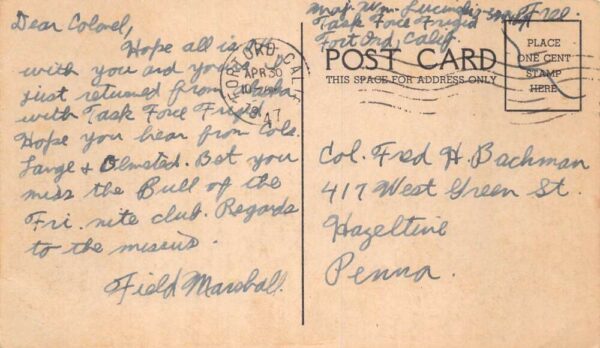 Dear Colonel,
Hope all is
with you and
just returned from
with Task Force Frigid.
Hope you hear from Cols.
Lange & Olmsted. Bet you
miss the Bull of the
Fri. nite club. Regards
to the missus.
Field Marshall.
FORT ORD, CALIF
APR 30
1947
Maj. Wm. Free
Task Force Frigid
Fort Ord, Calif.
POST CARD
THIS SPACE FOR ADDRESS ONLY
PLACE
ONE CENT
STAMP
HERE
Col. Fred H. Bachman
417 West Green St.
Hazeltine
Penna.